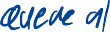 Quede al